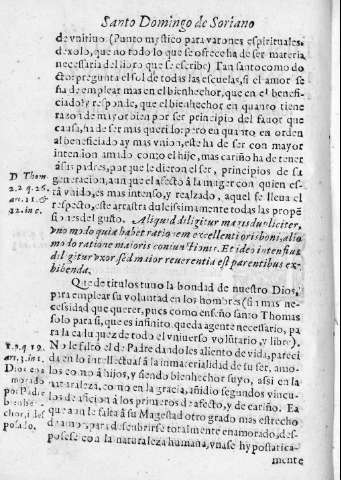 Santo Domingo de Soriano
de vnitiuo (Punto mystico para varones espirituales,
dexolo, que no todo lo que se ofrece ha de ser materia
necessaria del libro que se escribe) Tan santo como do
cto: pregunta el sol de todas las escuelas, si el amor se
ha de emplear mas en el bienhechor, que en el benefi-
ciado? y responde, que el bienhechor en quanto tiene
razon de mayor bien por ser principio del fauor que
causa, ha de ser mas querido: pero en quanto en orden
al beneficiado ay mas vnion, este ha de ser con mayor
intension amado como el hijo, mas cariño ha de tener
à sus padres, por que le dieron el ser, principios de su
generacion, aun que el afecto à la muger con quien es-
tà vnido, es mas intenso, y realzado, aquel se lleua el
respecto, este arrastra dulcissimamente todas las propẽ
siones del gusto. Aliquid diligitur magis dupliciter,
vno modo quia habet rationem excellentioris boni, alio
modo ratione maioris coniunctionis. Et ideo intensius
diligitur vxor sed maior reuerentia est parentibus ex-
hibenda.
D Thom
2.2 q. 26.
art. 11. &
12. in c.
Que de titulos tuuo la bondad de nuestro Dios,
para emplear su voluntad en los hombres (sin mas ne-
cessidad que querer, pues como enseño santo Thomas
solo para si, que es infinito, queda agente necessario, pa
ra la caduquez de todo el vniuerso volũtario, y libre).
No le faltò el de Padre dandoles aliento de vida, pareci
da en lo intellectual à la inmaterialidad de su ser, amo-
los como à hijos, y siendo bienhechor suyo, assi en la
naturaleza, como en la gracia, añidio segundos vincu-
los de aficion à los primeros de afecto, y de cariño. Ea
que aun le falta à su Magestad otro grado mas estrecho
de amor, para descubrirse totalmente enamorado, des-
posese con la naturaleza humana, vnase hypostatica-
mente
1. p. q 19.
art. 3. in c.
Dios ena
morado
por Padre
bienhe-
chor, i des
posado.